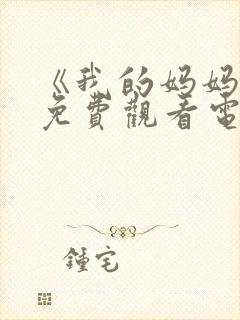 《我的妈妈
免費觀看電
鍾宅